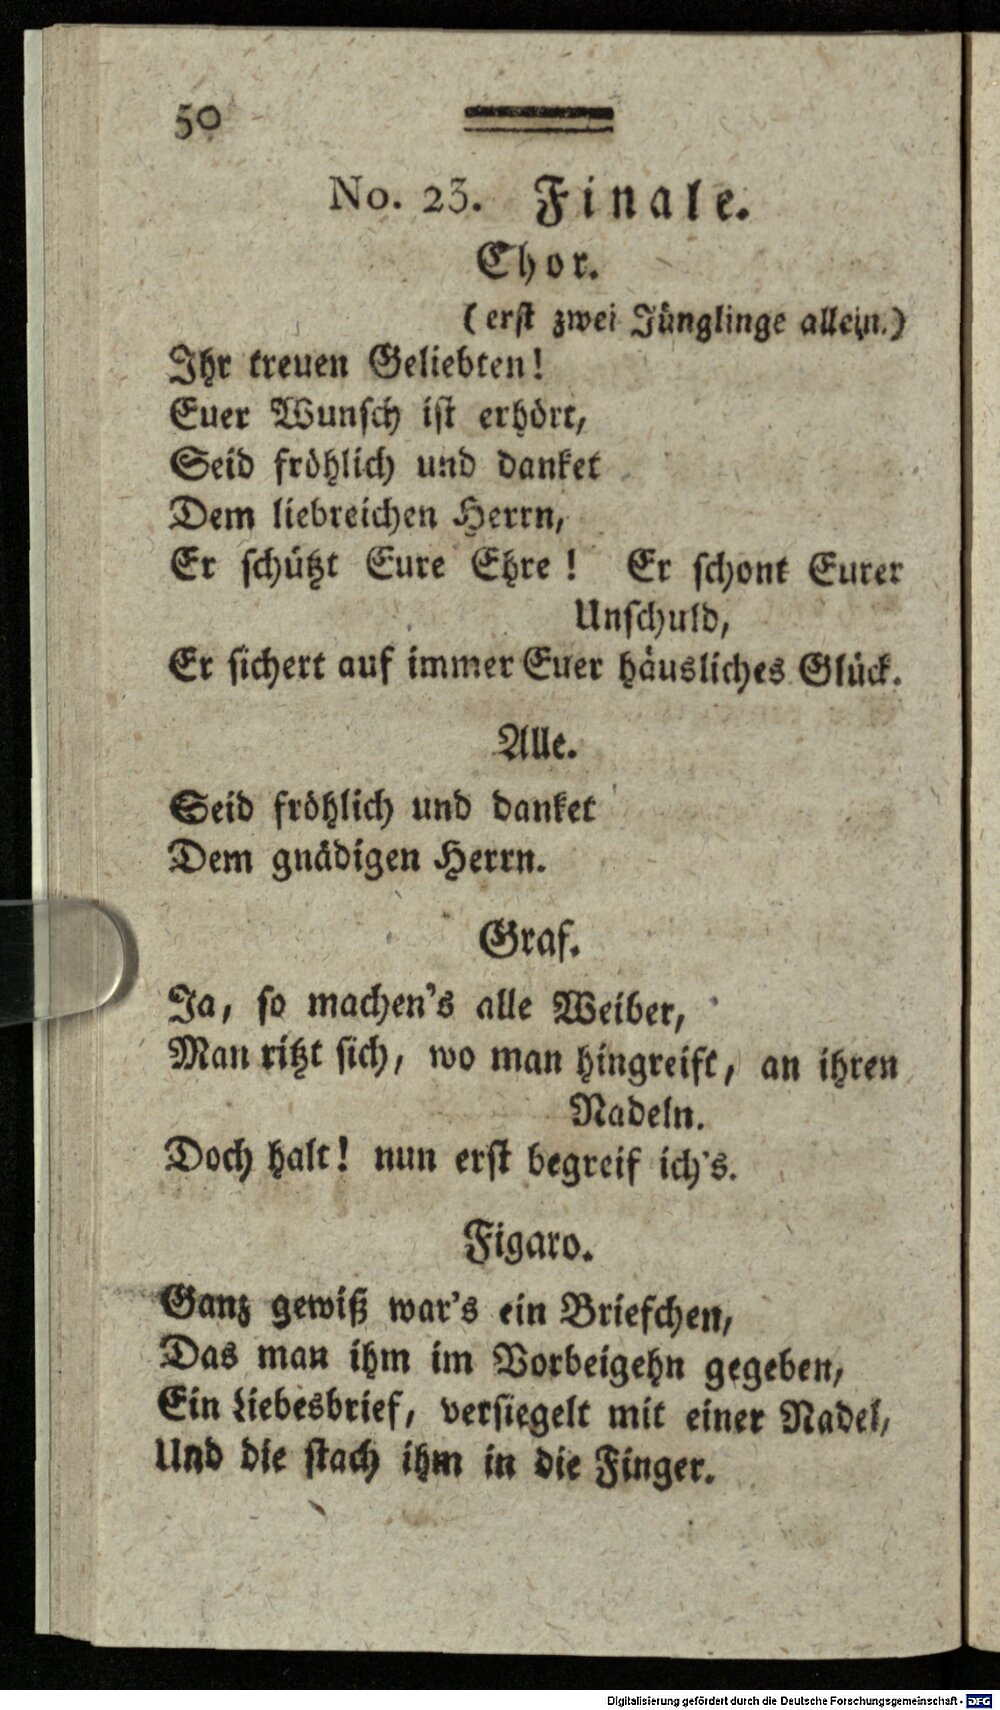 50
No. 23. Finale.
Chor.
(erst zwei Jünglinge allein.)
Ihr treuen Geliebten!
Euer Wunsch ist erhört,
Seid fröhlich und danket
Dem liebreichen Herrn,
Er schützt Eure Ehre! Er schont Eurer
Unschuld,
Er sichert auf immer Euer häusliches Glück.
Alle.
Seid fröhlich und danket
Dem gnädigen Herrn.
Graf.
Ja, so machen's alle Weiber,
Man ritzt sich, wo man hingreift, an ihren
Nadeln.
Doch halt! nun erst begreif ich's.
Figaro.
Ganz gewiß war's ein Briefchen,
Das man ihm im Vorbeigehn gegeben,
Ein Liebesbrief, versiegelt mit einer Nadel,
Und die stach ihm in die Finger.
Digitalisierung gefördert durch die Deutsche Forschungsgemeinschaft - DFG